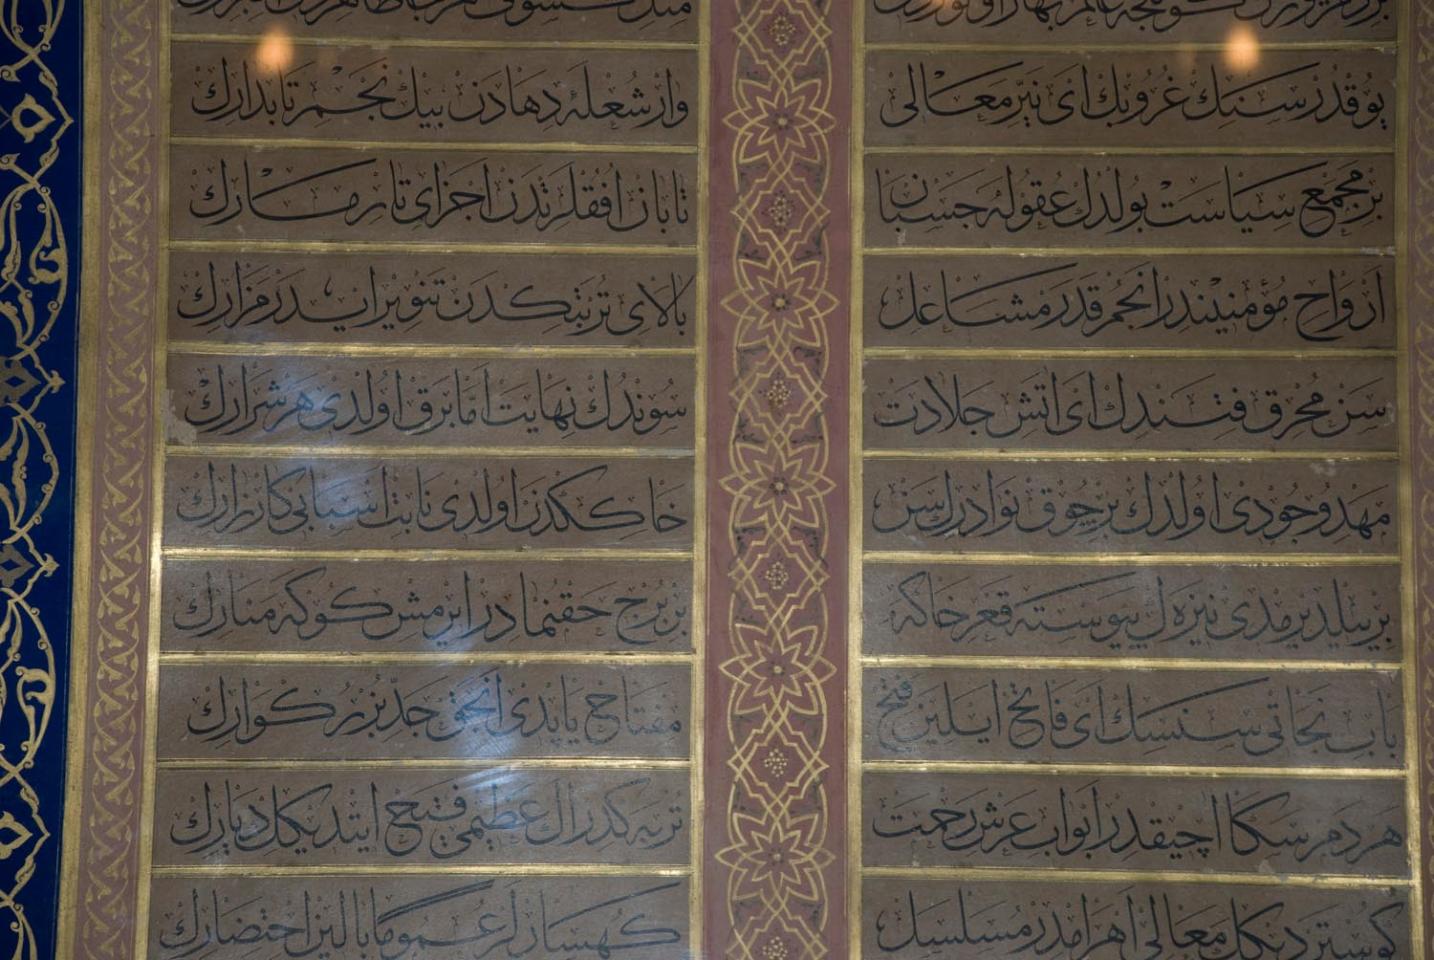 يوقدر سنك غروبك اى نيّر معالى
وار شعلۀ دهادن بيك نجم تابدارك
بر مجمع سياست بولدك عقوله حسبان
تابان افقلرندن اجزاى تارمارك
ارواح مؤمنيندر انجم قدر مشاعل
بالاى تربتكدن تنوير ايدر مزارك
سن محرق فتندك اى اتش جلادت
سوندك نهايت امّا برق اولدى هر شرارك
مهد وجودى اولدك بر چوق نوادرك سن
خاككدن اولدى نابت اسباب كارزارك
بر ييلديريمدى نيزه ك پيوسته قعر خاكه
بر برج حقنمادر ايرمش كوكه منارك
باب نجاتى سنسك اى فاتح ايلين فتح
مفتاح ياپدى انجق جدّ بزركوارك
هردم سكا آچيقدر ابواب عرش رحمت
تربه كدر اڭ عظيمى فتح ايتديكل ديارك
كوستردیكك معالى اهرامدر مسلسل
كهسارلر عموما بالين احتضارك